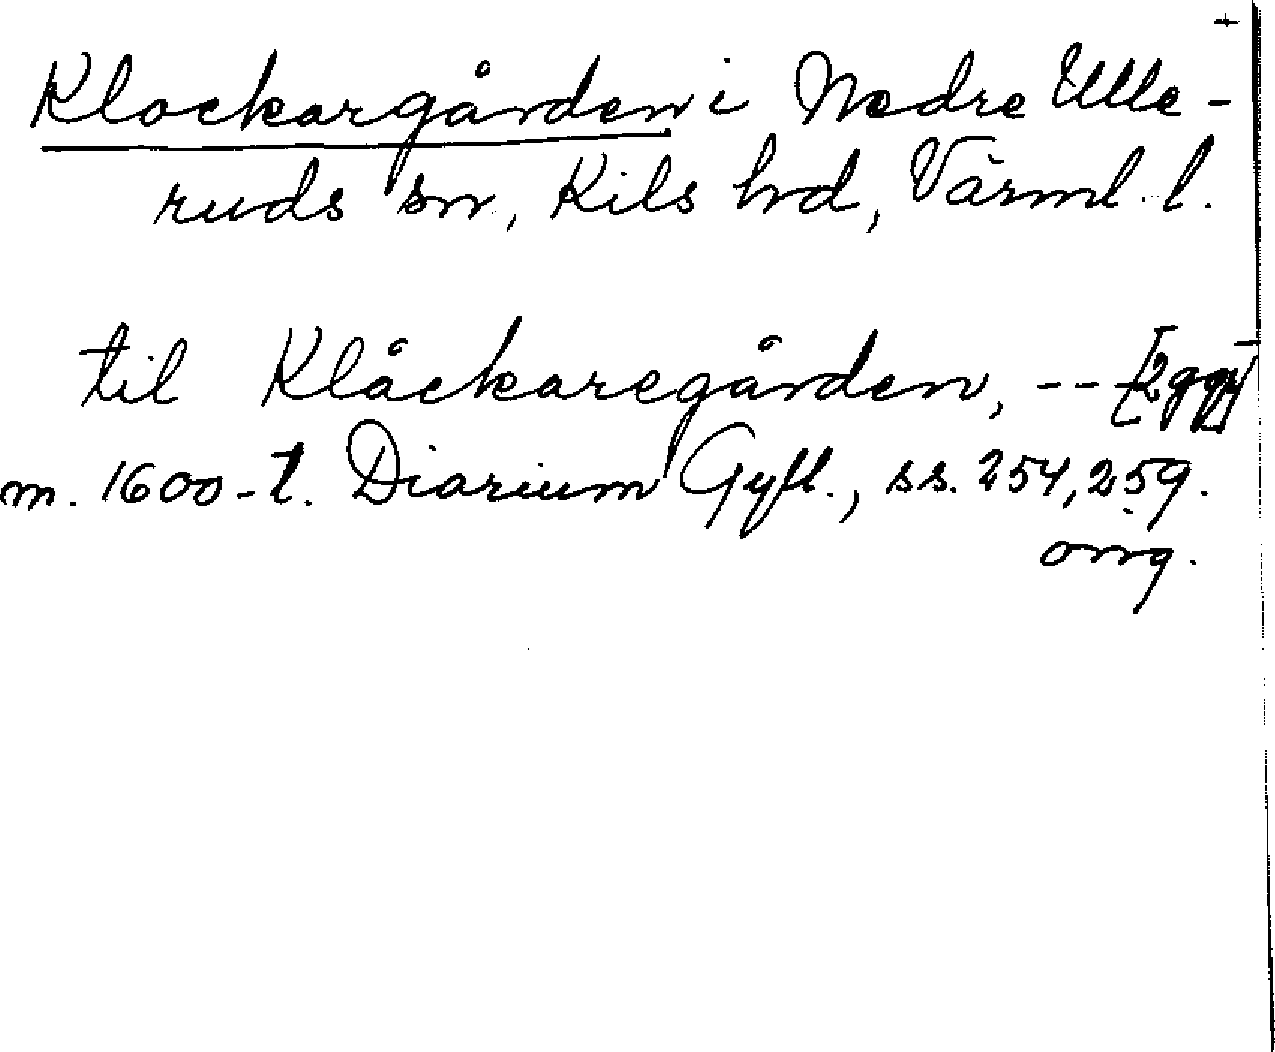 +
Klockargården i Nedre Ulle-
ruds sn, Kils hd, Värml. l.
til Klåckaregården, -- [2 ggr]
m. 1600-t. Diarium Gyll., ss. 254, 259.
orig.